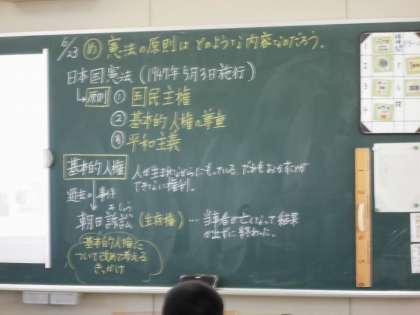 6/23 ㋱ 憲法の原則は どのような内容なのだろう。
日本国憲法(1947年5月3日施行)
原則 ① 国民主権
② 基本的人権の尊重
③ 平和主義
基本的人権 人が生まれながらにもっている だれもおかすことが
できない権利。
過去の事件
そしょう
朝日訴訟(生存権)… 当事者が亡くなって結果
が出ずに終わった。
基本的人権に
ついて改めて考える
きっかけ